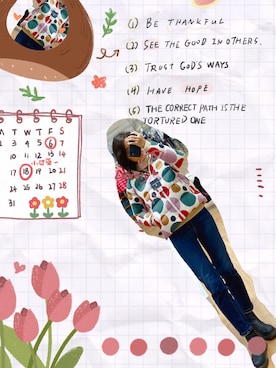 (1) BE THANKFUL
(2) SEE THE GOOD IN OTHERS.
(3) TRUST GOD'S WAYS
(4) HAVE HOPE
(5) THE CORRECT PATH IS THE
TORTURED ONE
M T W T F S
2 3 4 5 6 7
9 10 11 12 13 14
17 18 19 20 21
24 25 26 27 28
31